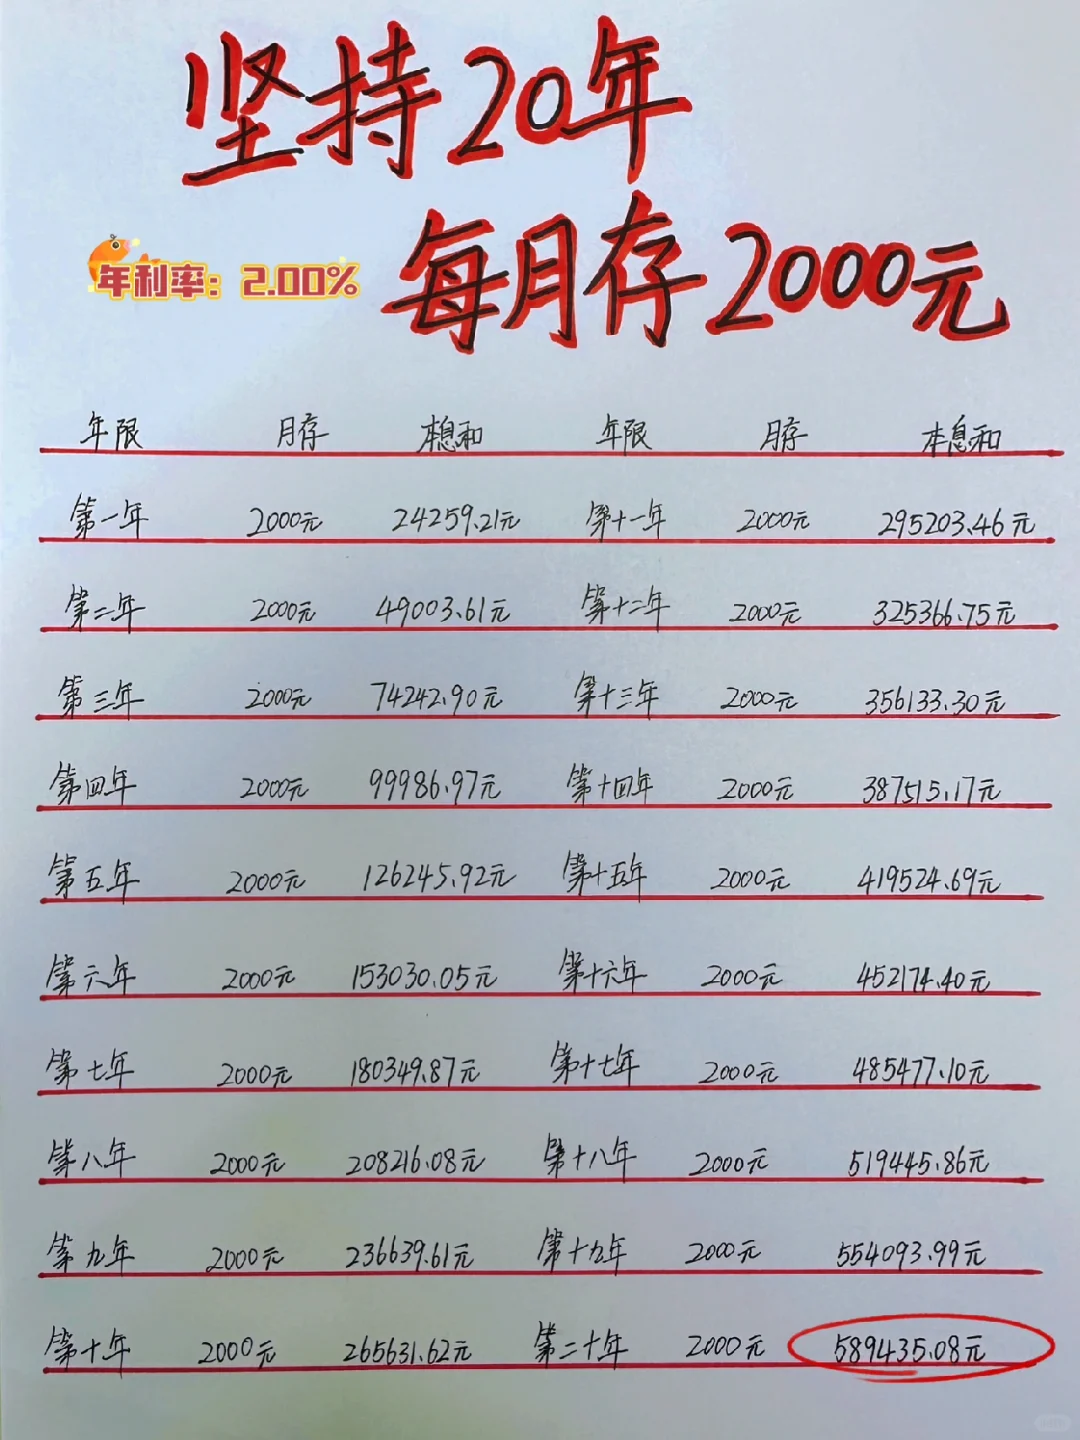 坚持20年
年利率：2.00%
每月存2000元
年限 月存 本息和 年限 月存 本息和
第一年 2000元 24259.21元 第十一年 2000元 295203.46元
第二年 2000元 49003.61元 第十二年 2000元 325366.75元
第三年 2000元 74242.90元 第十三年 2000元 356133.30元
第四年 2000元 99986.97元 第十四年 2000元 387515.17元
第五年 2000元 126245.92元 第十五年 2000元 419524.69元
第六年 2000元 153030.05元 第十六年 2000元 452174.40元
第七年 2000元 180349.87元 第十七年 2000元 485477.10元
第八年 2000元 208216.08元 第十八年 2000元 519445.86元
第九年 2000元 236639.61元 第十九年 2000元 554093.99元
第十年 2000元 265631.62元 第二十年 2000元 589435.08元